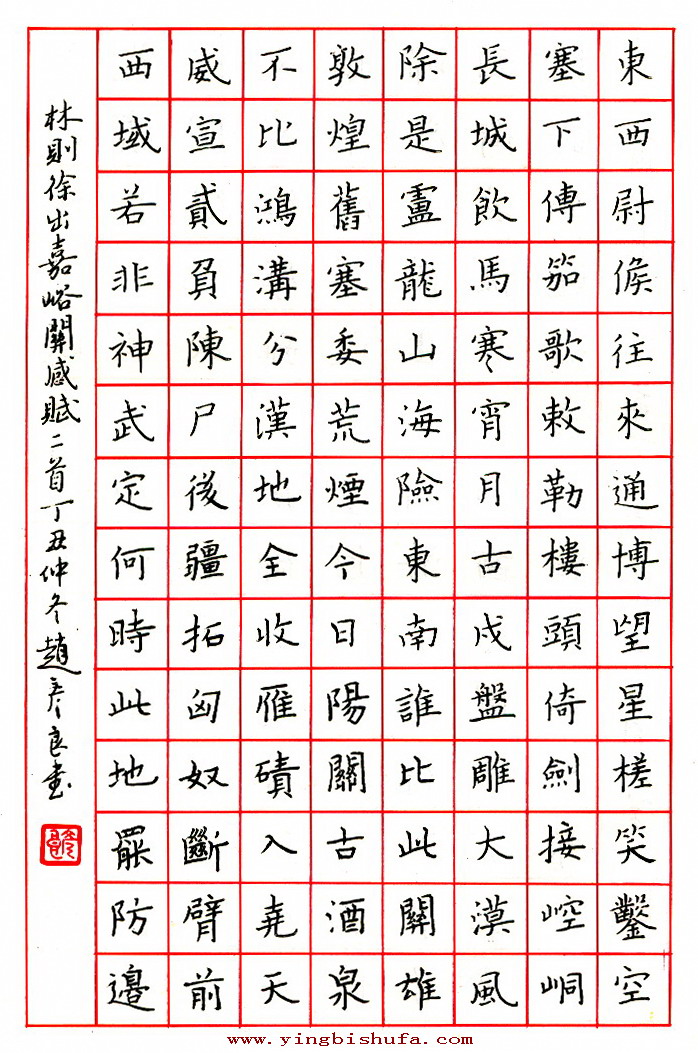 東西尉候往來通博望星槎笑鑿空
塞下傳笳歌敕勒樓頭倚劍接崆峒
長城飲馬寒宵月古戍盤雕大漠風
除是盧龍山海險東南誰比此關雄
敦煌舊塞委荒煙今日陽關古酒泉
不比鴻溝分漢地全收雁磧入堯天
威宣貳負陳尸後疆拓匈奴斷臂前
西域若非神武定何時此地罷防邊
林則徐出嘉峪關感賦二首丁丑仲冬趙彥良書
www.yingbishufa.com